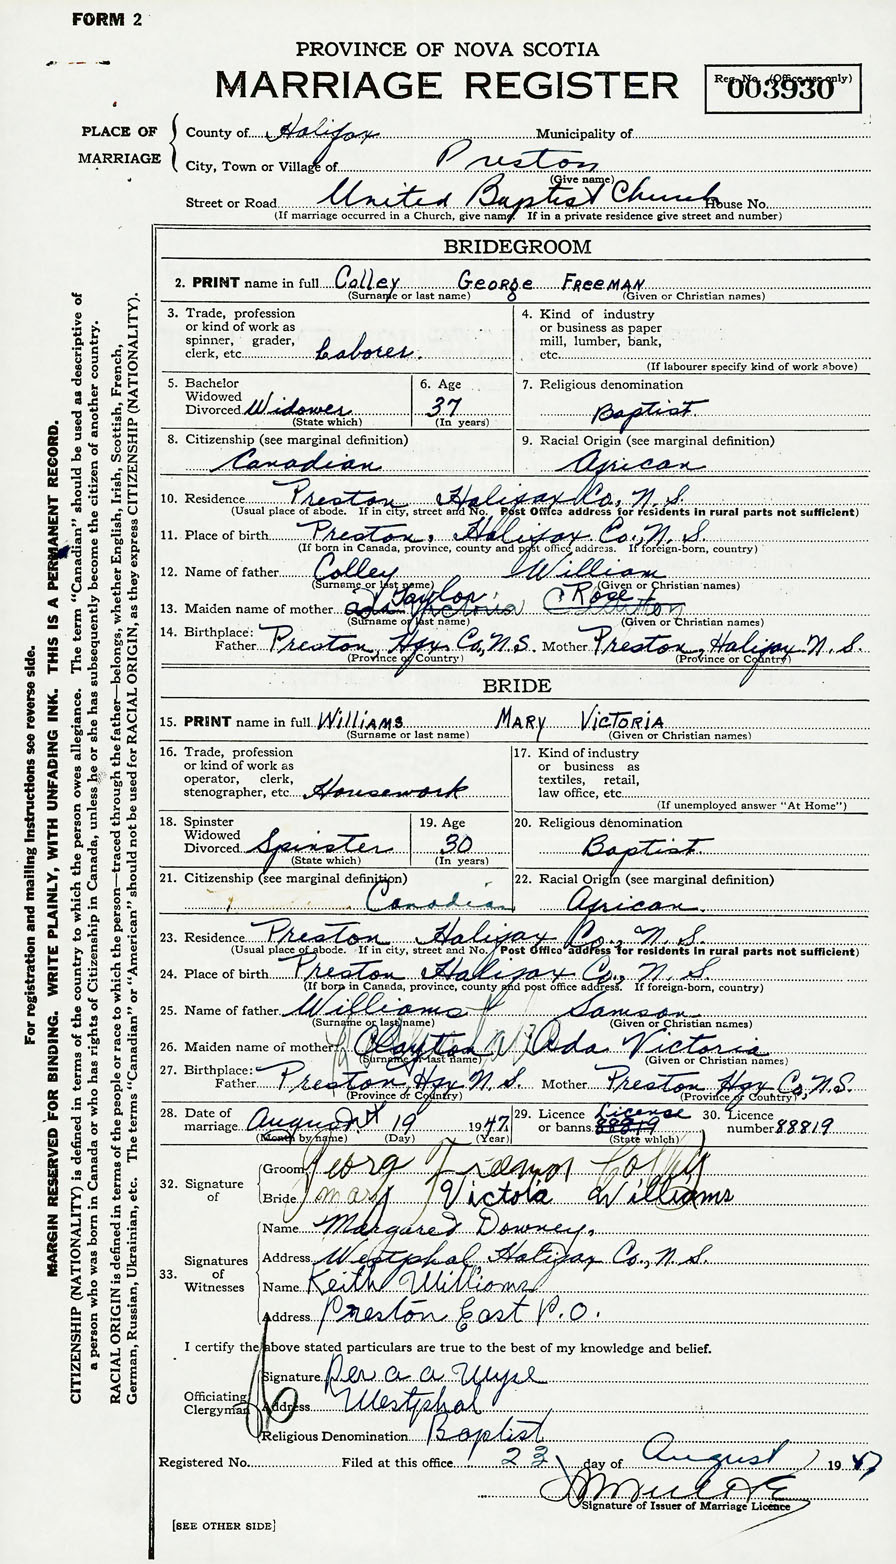 FORM 2
PROVINCE OF NOVA SCOTIA
MARRIAGE REGISTER
Reg. No. (Office use only)
003930
PLACE OF MARRIAGE
County of Halifax Municipality of
City, Town or Village of Preston
(Give name)
Street or Road United Baptist Church House No.
(If marriage occurred in a Church, give name. If in a private residence give street and number)
BRIDEGROOM
2. PRINT name in full Colley George Freeman
(Surname or last name) (Given or Christian names)
3. Trade, profession or kind of work as spinner, grader, clerk, etc. Laborer.
4. Kind of industry or business as paper mill, lumber, bank, etc.
(If labourer specify kind of work above)
5. Bachelor Widowed Divorced Widower
(State which)
6. Age 37
(In years)
7. Religious denomination Baptist
8. Citizenship (see marginal definition) Canadian
9. Racial Origin (see marginal definition) African
10. Residence Preston Halifax Co, N.S.
(Usual place of abode. If in city, street and No. Post Office address for residents in rural parts not sufficient)
11. Place of birth Preston, Halifax Co., N.S.
(If born in Canada, province, county and post office address. If foreign-born, country)
12. Name of father Colley William
(Surname or last name) (Given or Christian names)
13. Maiden name of mother Taylor Rose
(Surname or last name) (Given or Christian names)
14. Birthplace: Father Preston, Hfx Co, N.S. Mother Preston, Halifax N.S.
(Province or Country) (Province or Country)
BRIDE
15. PRINT name in full Williams Mary Victoria
(Surname or last name) (Given or Christian names)
16. Trade, profession or kind of work as operator, clerk, stenographer, etc. Housework
17. Kind of industry or business as textiles, retail, law office, etc.
(If unemployed answer "At Home")
18. Spinster Widowed Divorced Spinster
(State which)
19. Age 30
(In years)
20. Religious denomination Baptist
21. Citizenship (see marginal definition) Canadian
22. Racial Origin (see marginal definition) African
23. Residence Preston Halifax Co., N.S.
(Usual place of abode. If in city, street and No. Post Office address for residents in rural parts not sufficient)
24. Place of birth Preston Halifax Co., N.S.
(If born in Canada, province, county and post office address. If foreign-born, country)
25. Name of father Williams Samson
(Surname or last name) (Given or Christian names)
26. Maiden name of mother Clayton Ada Victoria
(Surname or last name) (Given or Christian names)
27. Birthplace: Father Preston, Hfx N.S. Mother Preston Hfx Co, N.S.
(Province or Country) (Province or Country)
28. Date of marriage August 19 1947
(Month by name) (Day) (Year)
29. Licence or banns License 88819
(State which)
30. Licence number 88819
32. Signature of
Groom George Freeman Colley
Bride Mary Victoria Williams
33. Signatures of Witnesses
Name Margaret Downey,
Address Westphal, Halifax Co., N.S.
Name Keith Williams
Address Preston East P.O.
I certify the above stated particulars are true to the best of my knowledge and belief.
Officiating Clergyman
Signature Rev a a Wyse
Address Westphal
Religious Denomination Baptist
Registered No. Filed at this office 23 day of August 1947
Signature of Issuer of Marriage Licence
[SEE OTHER SIDE]
For registration and mailing instructions see reverse side.
MARGIN RESERVED FOR BINDING. WRITE PLAINLY, WITH UNFADING INK. THIS IS A PERMANENT RECORD.
CITIZENSHIP (NATIONALITY) is defined in terms of the country to which the person owes allegiance. The term "Canadian" should be used as descriptive of
a person who was born in Canada or who has rights of Citizenship in Canada, unless he or she has subsequently become the citizen of another country.
RACIAL ORIGIN is defined in terms of the people or race to which the person—traced through the father—belongs, whether English, Irish, Scottish, French,
German, Russian, Ukrainian, etc. The terms "Canadian" or "American" should not be used for RACIAL ORIGIN, as they express CITIZENSHIP (NATIONALITY).